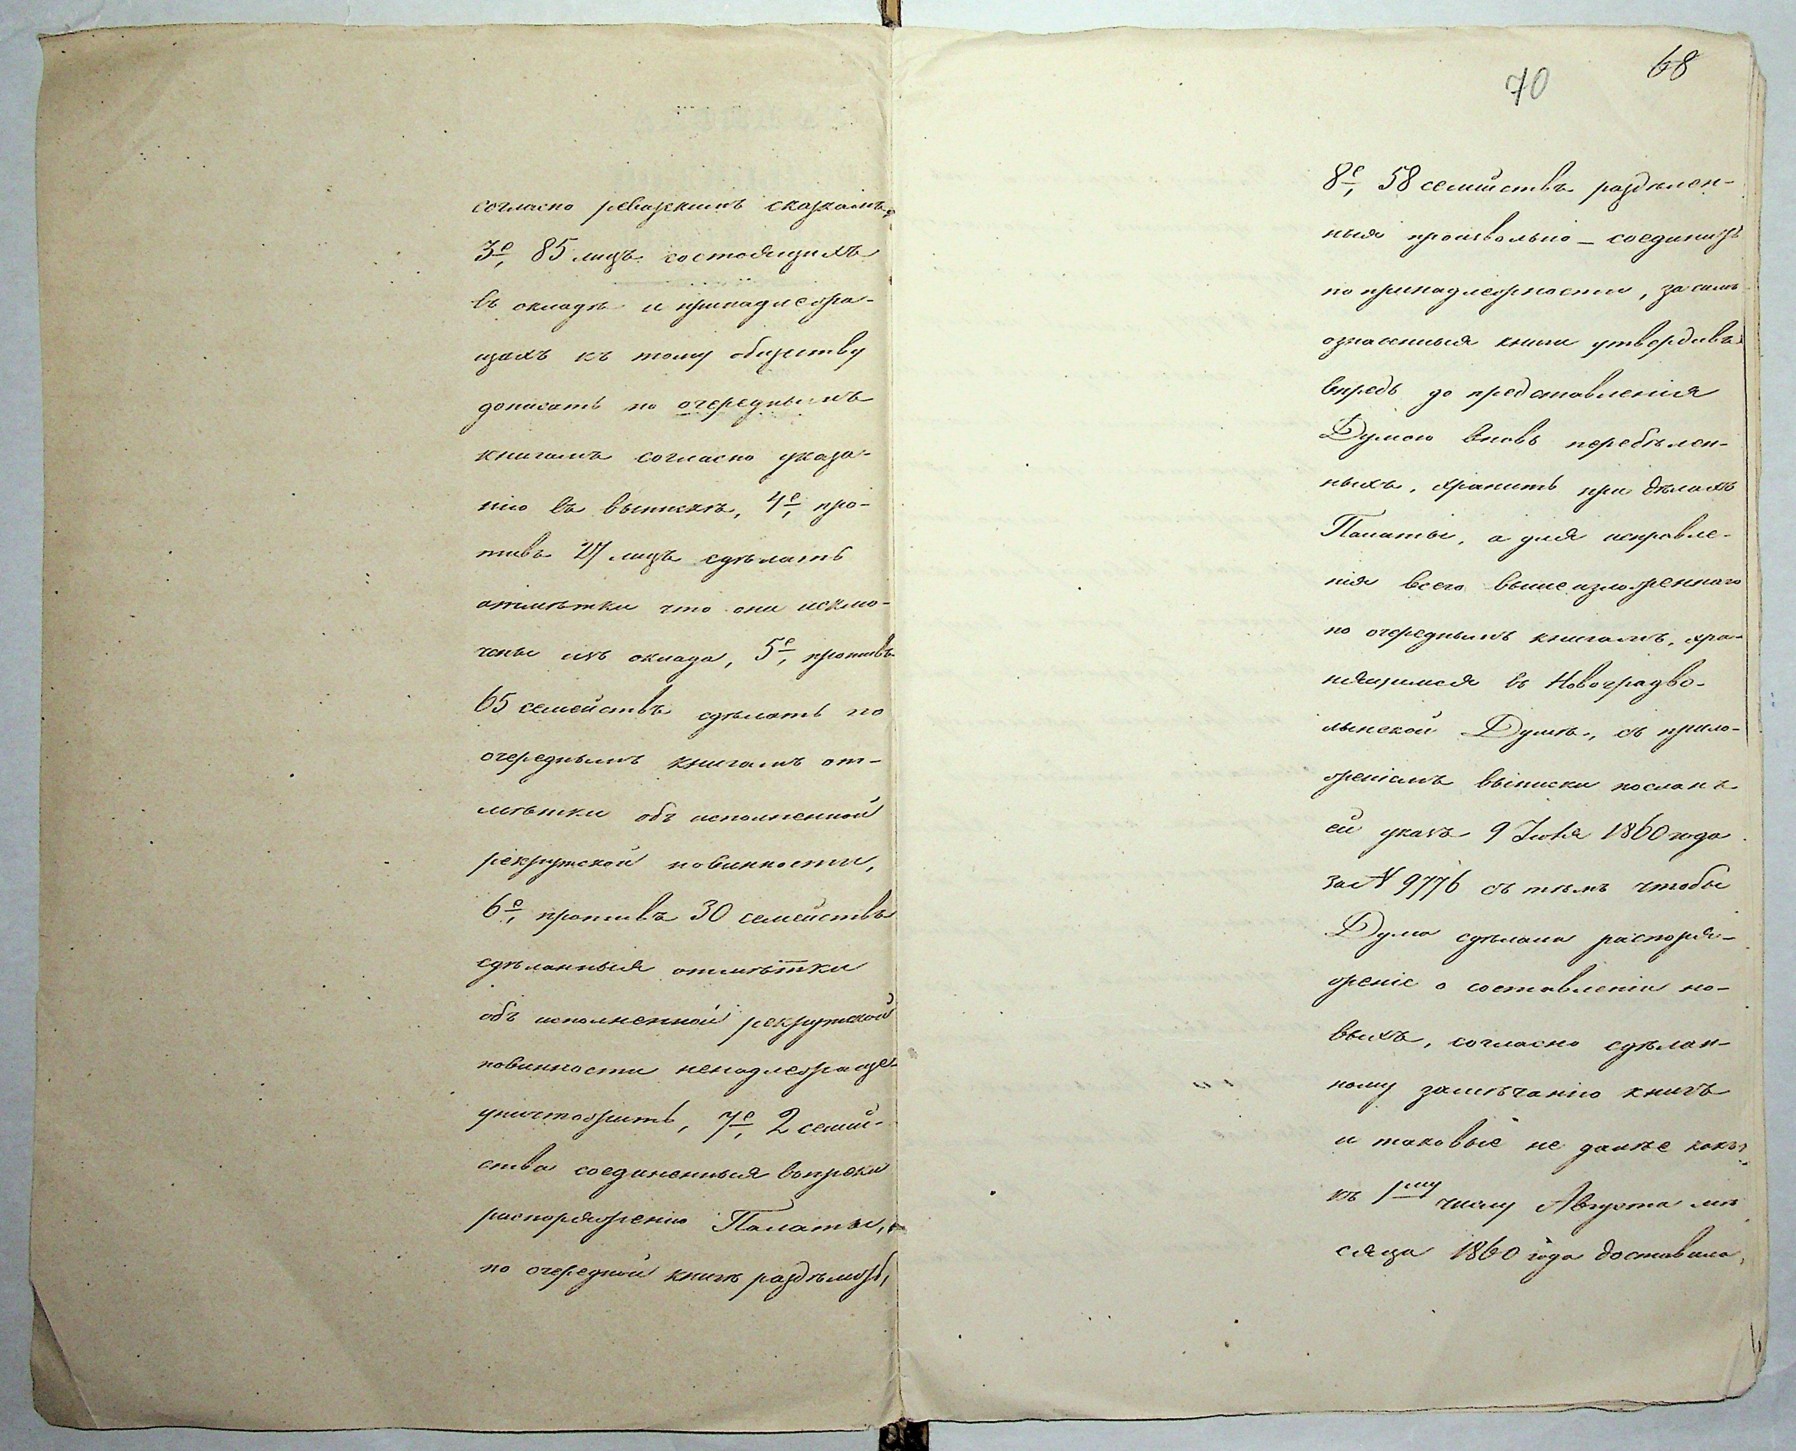 согласно ревизкимъ сказкамъ,
3е, 85 лицъ состоящихъ
въ окладѣ и принадлежа-
щихъ къ тому обществу
дописать по очереднымъ
книгамъ согласно указа-
нію въ выпискѣ, 4е, про-
тивъ 27 лицъ сдѣлать
отмѣтки что они исклю-
чены изъ оклада, 5е, противъ
65 семействъ сдѣлать по
очереднымъ книгамъ от-
мѣтки объ исполненной
рекрутской повинности,
6е, противъ 30 семействъ
сдѣланныя отмѣтки
объ исполненной рекрутской
повинности ненадлежаще
уничтожить, 7е, 2 семей-
ства соединенныя вопреки
распоряженію Палаты,
по очередной книгѣ раздѣлить,
68
70
8е, 58 семействъ раздѣлен-
ныя произвольно – соединить
по принадлежности, за симъ
означенныя книги утвердивъ
впредь до представленія
Думою вновь перебѣлен-
ныхъ, хранить при дѣлахъ
Палаты, а для исправле-
нія всего вышеизложеннаго
по очереднымъ книгамъ, хра-
нящимся въ Новоградво-
лынской Думѣ, съ прило-
женіемъ выписки посланъ
ей указъ 9 Іюля 1860 года
за № 9776 съ тѣмъ чтобы
Дума сдѣлала распоря-
женіе о составленіи но-
выхъ, согласно сдѣлан-
ному замѣчанію книгъ
и таковые не далѣе какъ
къ 1му числу Августа мѣ
сяца 1860 года доставила,